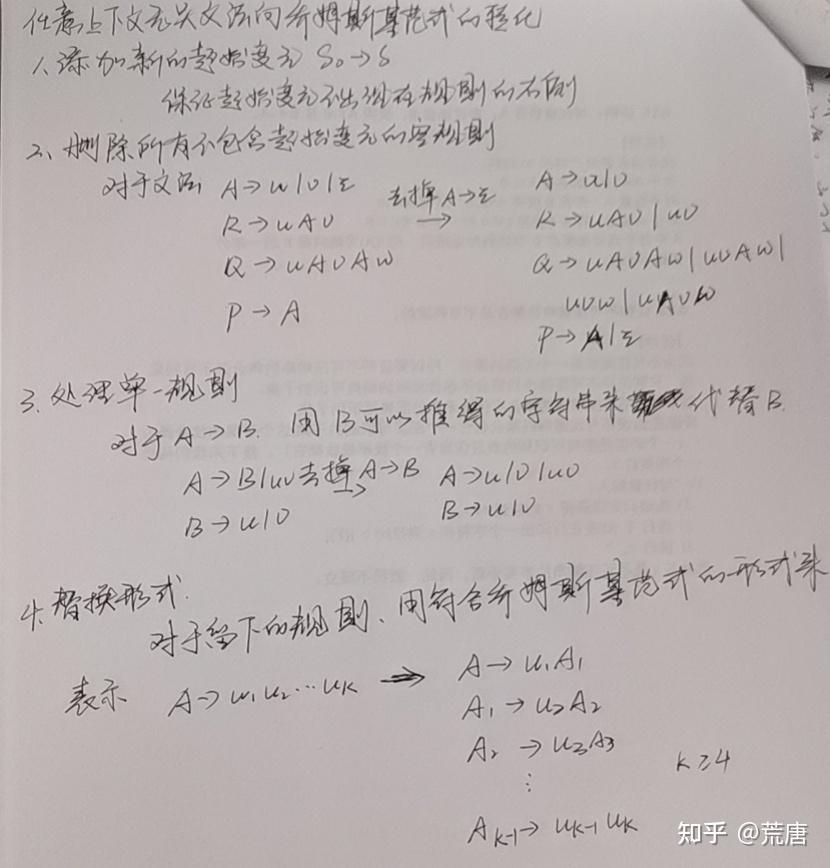 任意上下文无关文法向乔姆斯基范式的转化
1、添加新的起始变元 S₀→S
保证起始变元不出现在规则的右侧
2、删除所有不包含起始变元的空规则
对于文法 A→u|υ|ε 去掉A→ε → A→u|υ
R→uAυ R→uAυ|uυ
Q→uAυAw Q→uAυAw|uυAw|
uυw|uAυw
P→A P→A|ε
3、处理单一规则
对于A→B. 用B可以推得的字符串来代替B.
A→B|uυ 去掉A→B → A→u|υ|uυ
B→u|υ B→u|υ
4、替换形式.
对于留下的规则、用符合乔姆斯基范式的形式来
表示 A→u₁u₂…uₖ ⇒ A→u₁A₁
A₁→u₂A₂
A₂→u₃A₃
⋮ k≥4
Aₖ₋₁→uₖ₋₁uₖ
知乎 @荒唐